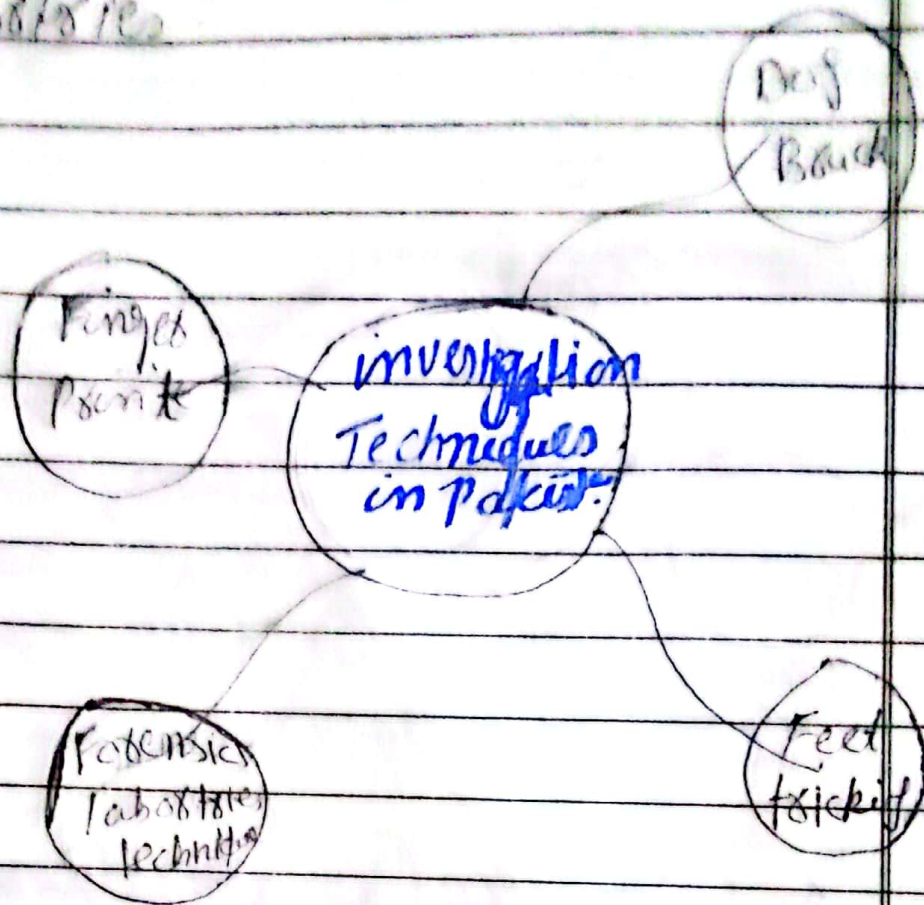 Branch
Finger
Prints
investigation
Techniques
in Pakist.
Forensic
labortries
techniques
Feet
tricking